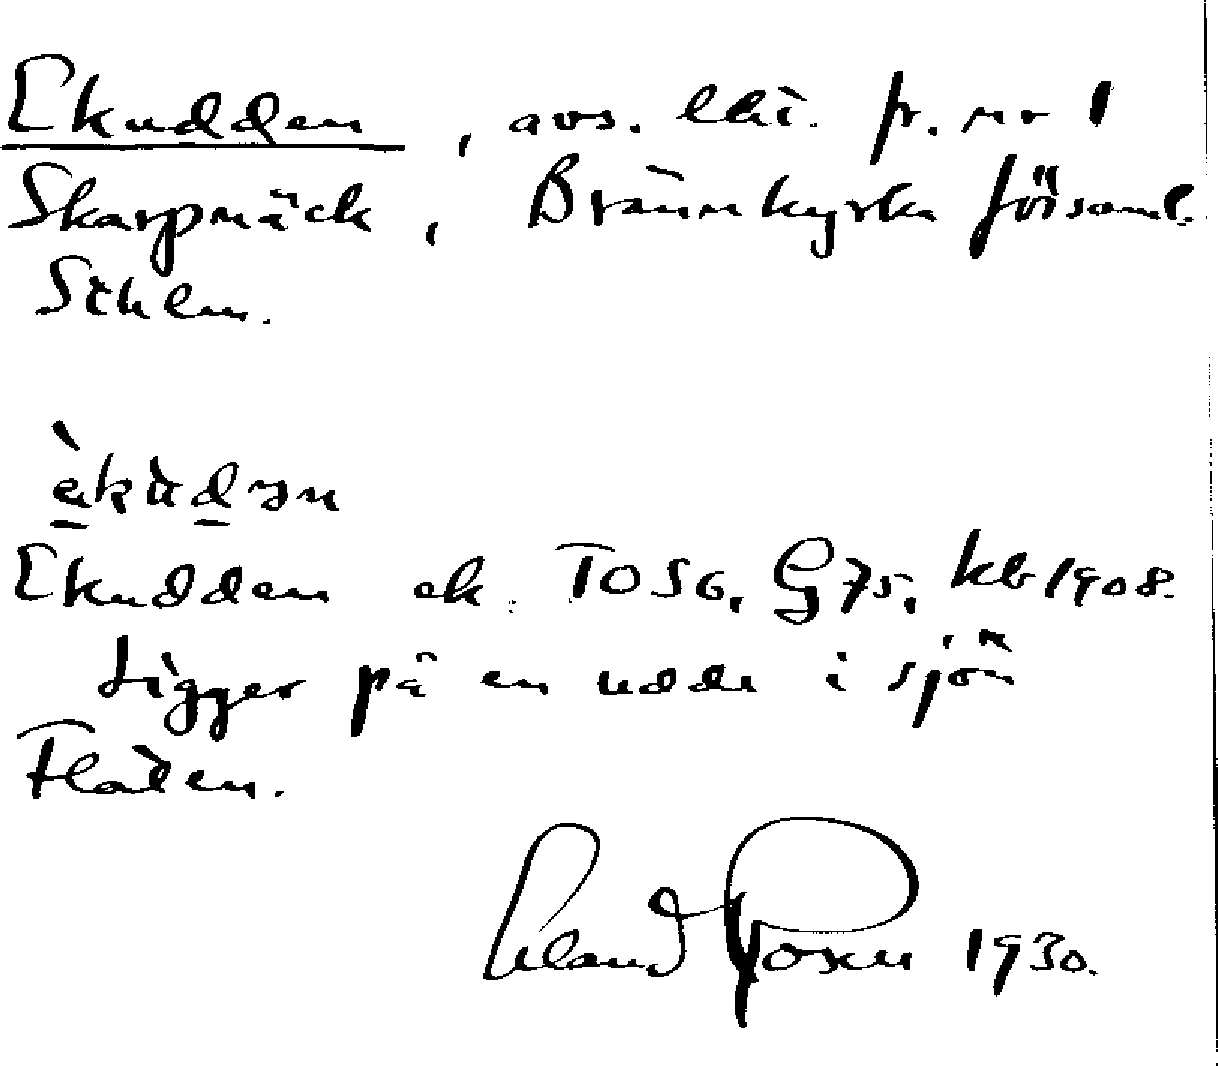 Ekudden, avs. lht. fr. nr 1
Skarpnäck, Brännkyrka församl.
Sthlm.
èkùdən
Ekudden ek. TO56, G75, kb 1908.
Ligger på en udde i sjön
Flaten.
Erland Rosen 1930.